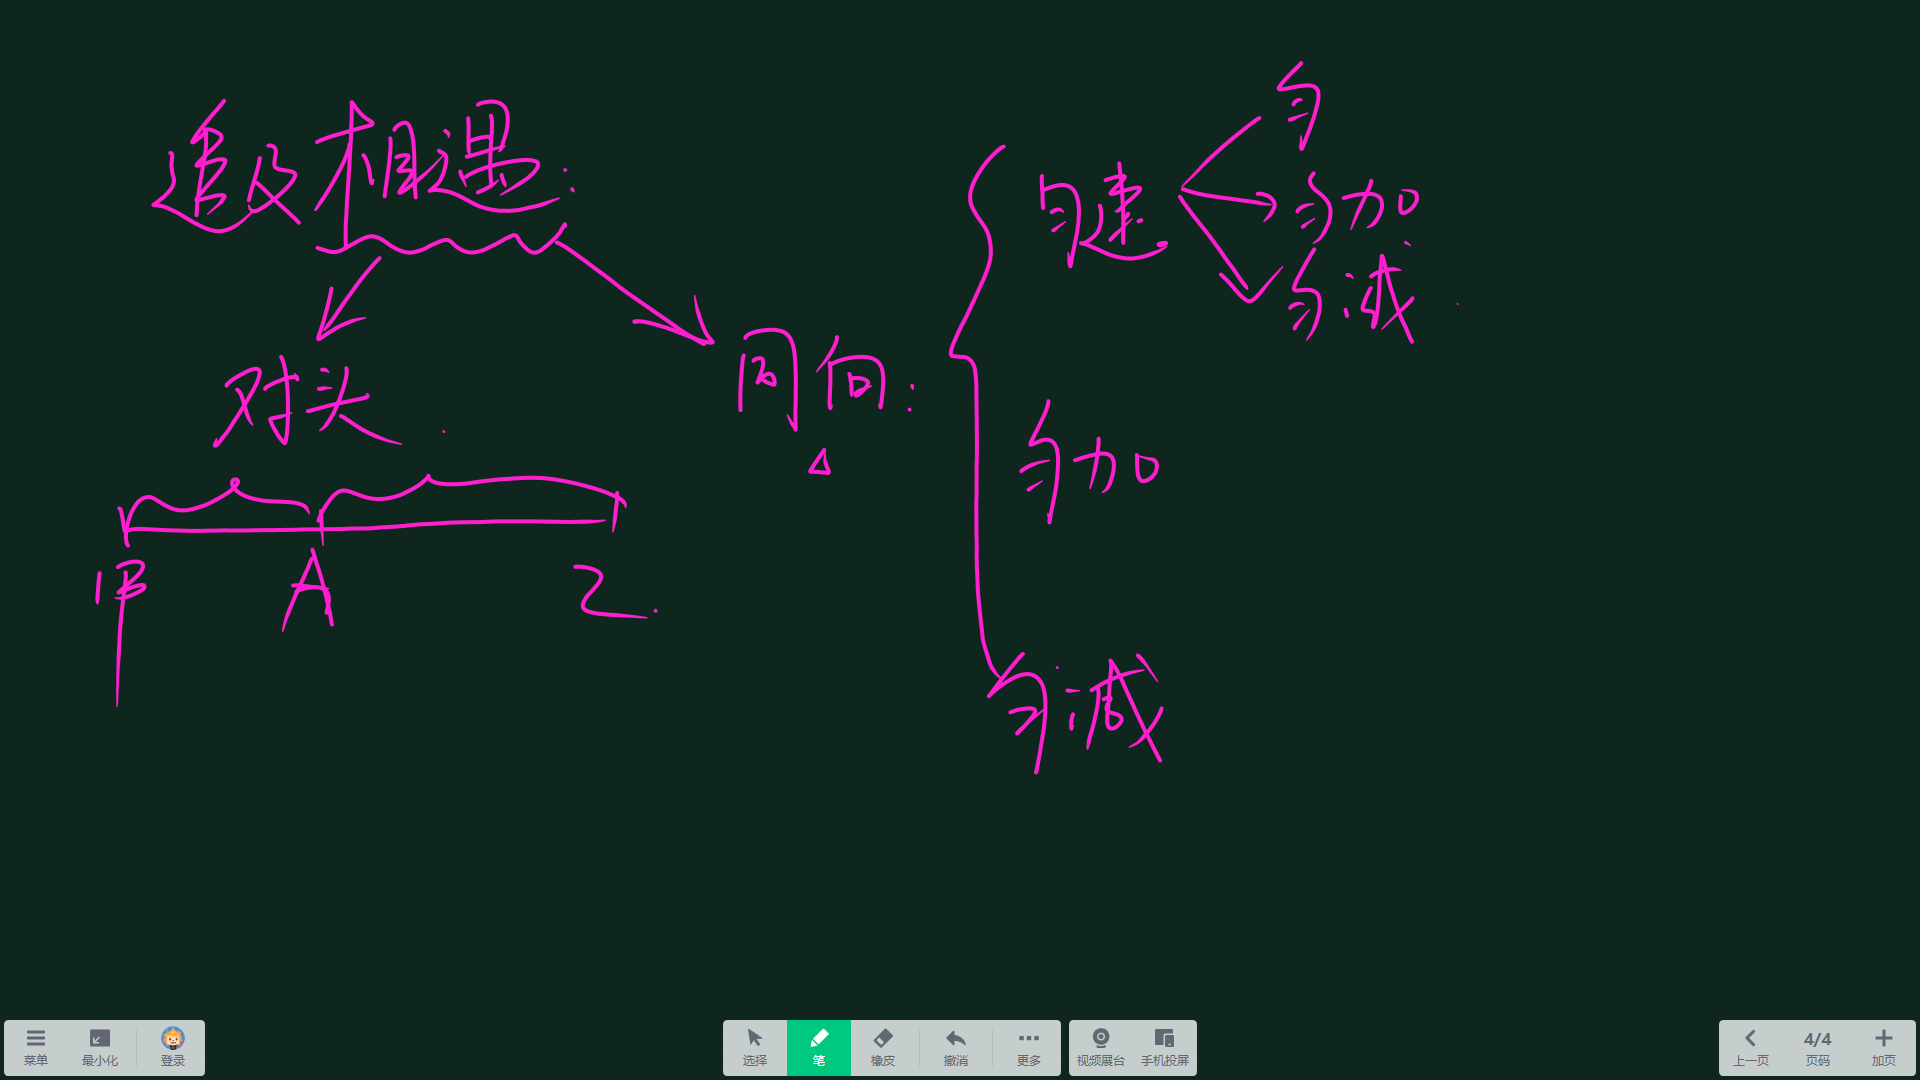 追及相遇:
对头.
甲 A 乙.
同向:
匀速
匀
匀加
匀减.
匀加
匀减
菜单 最小化 登录 选择 笔 橡皮 撤消 更多 视频展台 手机投屏 上一页 4/4 页码 加页